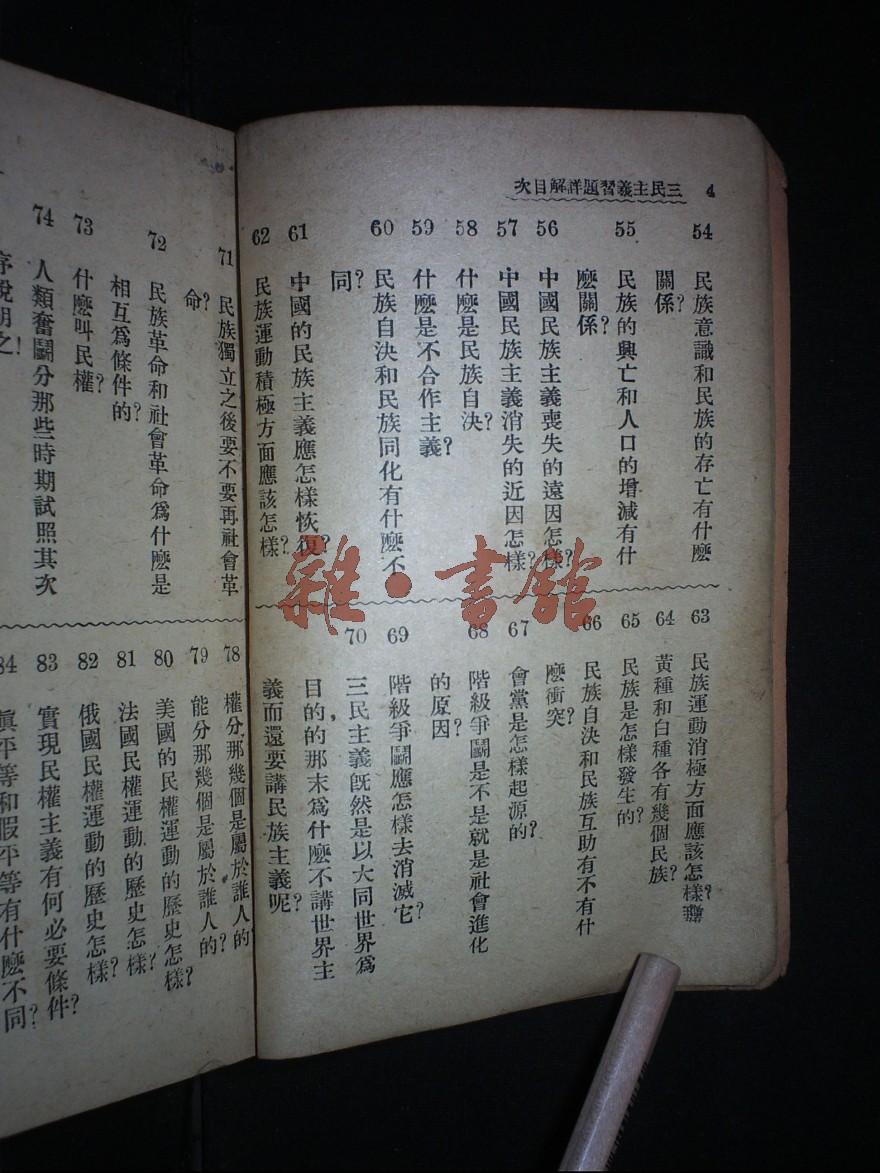 4 三民主義習題詳解目次
54 民族意識和民族的存亡有什麼
關係?
55 民族的興亡和人口的增減有什
麼關係?
56 中國民族主義喪失的遠因怎樣?
57 中國民族主義消失的近因怎樣?
58 什麼是民族自決?
59 什麼是不合作主義?
60 民族自決和民族同化有什麼不
同?
61 中國的民族主義應怎樣恢復?
62 民族運動積極方面應該怎樣?
63 民族運動消極方面應該怎樣?
64 黃種和白種各有幾個民族?
65 民族是怎樣發生的?
66 民族自決和民族互助有不有什
麼衝突?
67 會黨是怎樣起源的?
68 階級爭鬭是不是就是社會進化
的原因?
69 階級爭鬭應怎樣去消滅它?
70 三民主義旣然是以大同世界爲
目的的那末爲什麼不講世界主
義而還要講民族主義呢?
71 民族獨立之後要不要再社會革
命?
72 民族革命和社會革命爲什麼是
相互爲條件的?
73 什麼叫民權?
74 人類奮鬭分那些時期試照其次
序說明之!
78 權分那幾個是屬於誰人的?
79 能分那幾個是屬於誰人的?
80 美國的民權運動的歷史怎樣?
81 法國民權運動的歷史怎樣?
82 俄國民權運動的歷史怎樣?
83 實現民權主義有何必要條件?
84 眞平等和假平等有什麼不同?
雜·書館